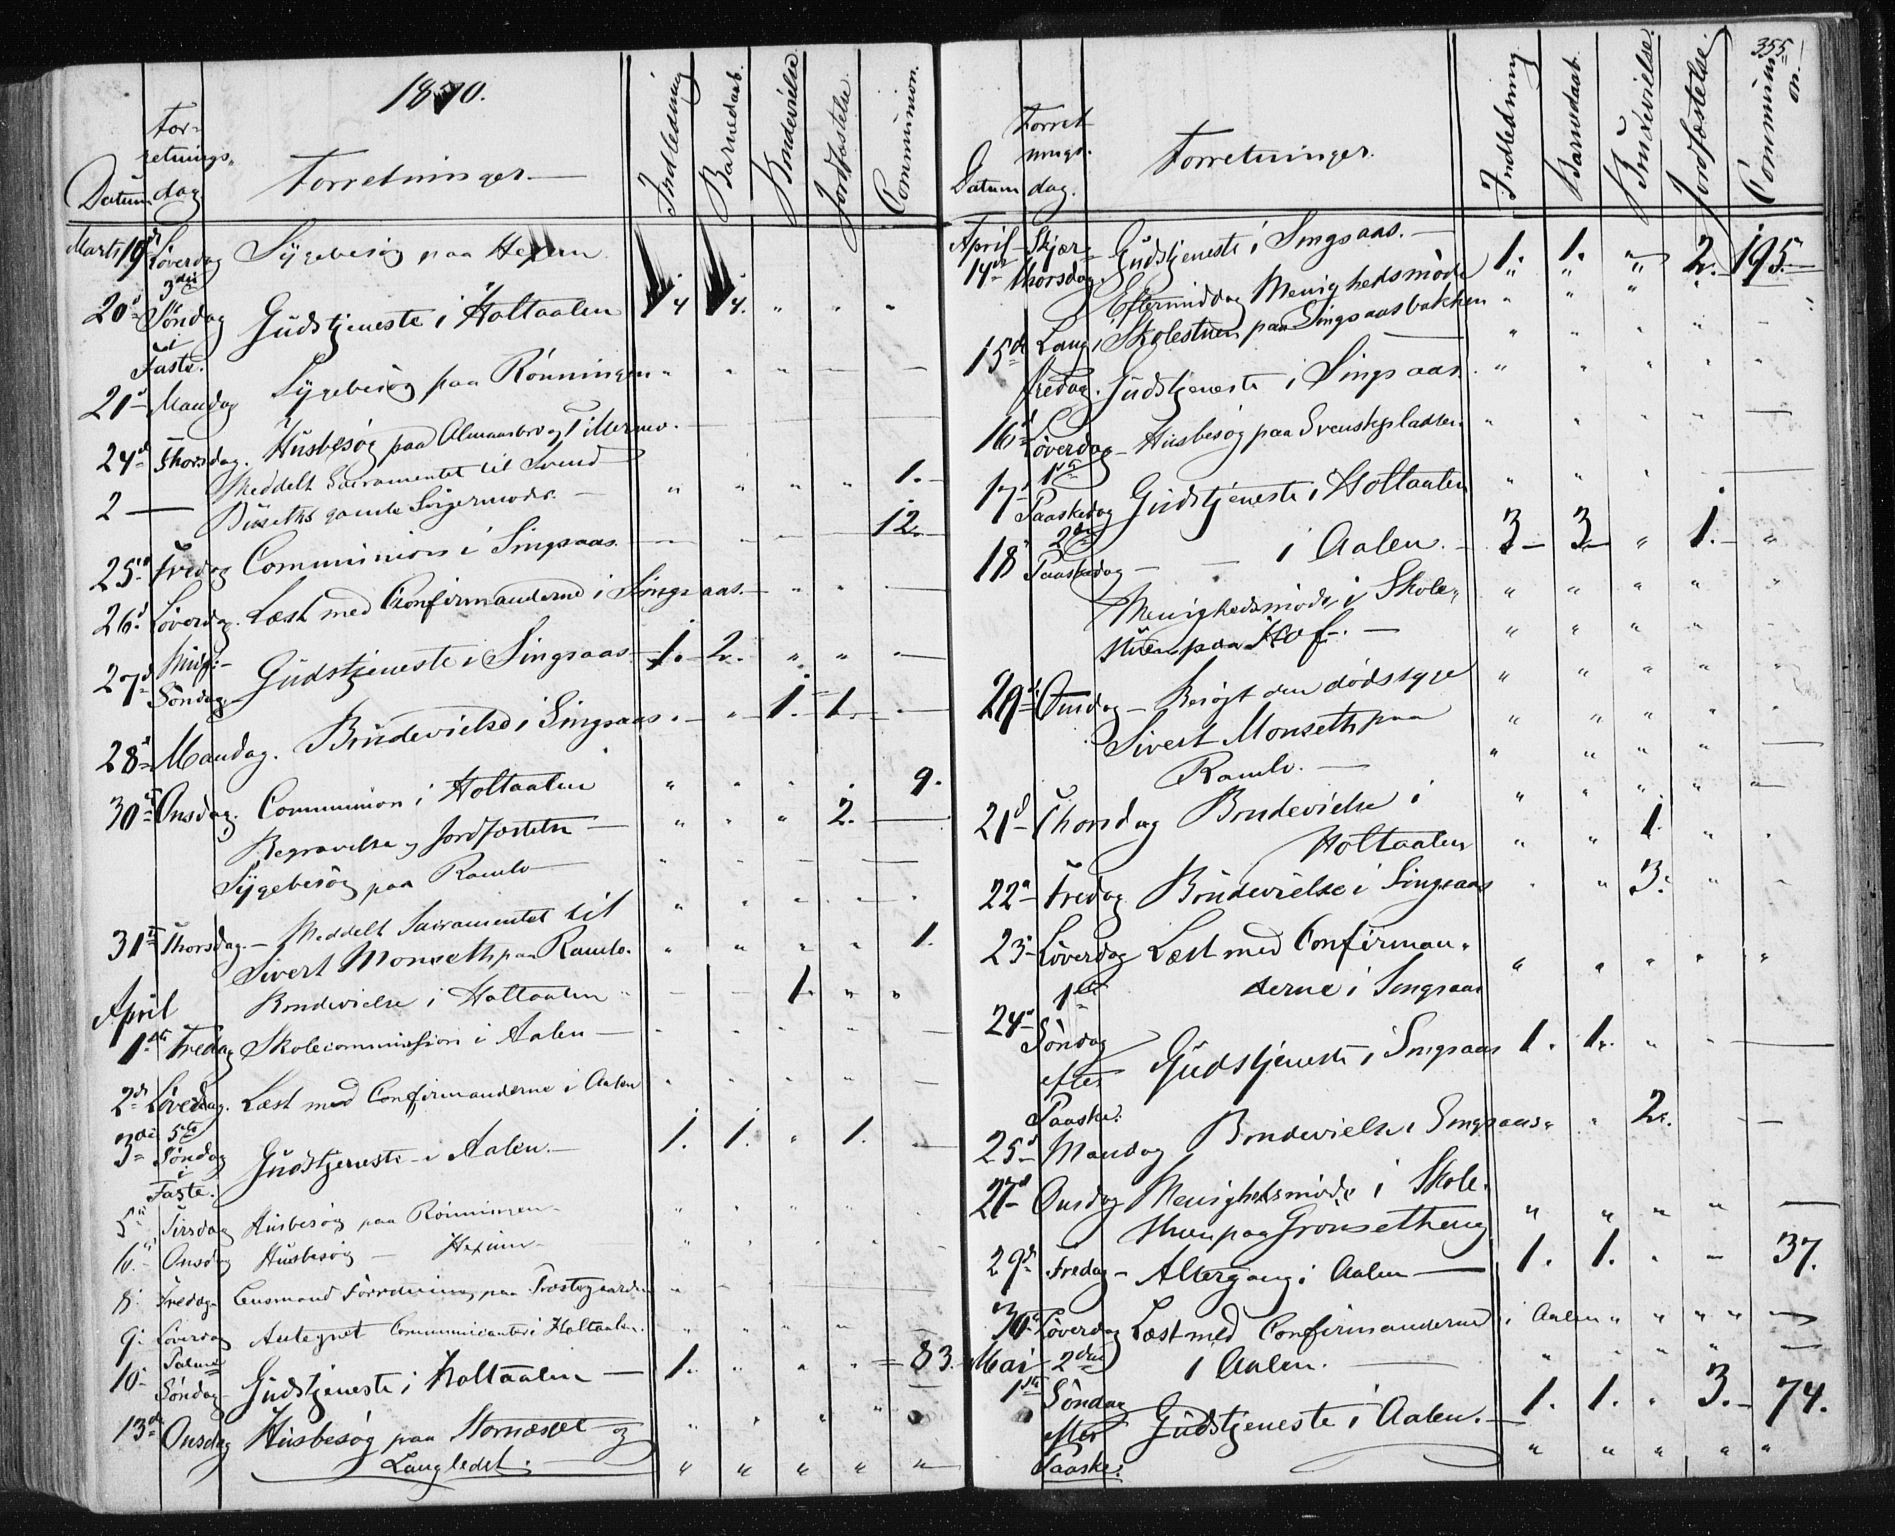 1870.
For-
retnings-
Datum dag Forretninger. Indledning Barnedaab. Brudevielse Jordfæstelse. Communion.
Marts 19d Løverdag Sygebesøg paa Hexem
3die
20d Søndag Gudstjeneste i Holtaalen 4. 4. " " "
i
Faste.
21d Mandag Sygebesøg paa Rønningen "
24d Thorsdag. Husbesøg paa Almaasbro og
Meddelt Sacramentet til Svend 1.
2 — gamle Svigermoder. — " " " "
25d Fredag Communion i Singsaas. 12.
26d Løverdag. Læst med Confirmanderne i Singsaas.
27d Midf:-
Søndag Gudstjeneste i Singsaas 1. 2. " " —
28d Mandag. Brudevielse i Singsaas. 1. 1.
30d Onsdag. Communion i Holtaalen " " " . 9.
Begravelse og Jordfæstelse — " " " 2. —
Sygebesøg paa Ramlo
31te Thorsdag. — Meddelt Sacramentet til
Sivert Monseth paa Ramlo. " " " " 1.
April Brudevielse i Holtaalen 1. " "
1ste Fredag Skolecommission i Aalen —
2den Løverdag. Læst med Confirmanderne i Aalen
3die 5te
Søndag Gudstjeneste i Aalen. — 1. 1. " 1.
i
Faste.
5te Tirsdag Husbesøg paa Rønningen
6te Onsdag Husbesøg — Hexem
8. Fredag paa Præstegaarden
9. Løverdag Antegnet Communicanter i Holtaalen.
10. Palme
Søndag Gudstjeneste i Holtaalen — 1. " " " 83.
13d Onsdag Husbesøg paa og
Langledet. — " " " " "
355.
Forret-
nings-
Datum dag. Forretninger. Indledning Barnedaab. Brudevielse. Jordfæstelse. Communion.
April Skjær- Gudstjeneste i Singsaas. — 1. 1. " 2. 195.
14de thorsdag. Eftermiddag Menighedsmøde " " "
i Skolestuen paa Singsaasbakken
15de Lang-
fredag. Gudstjeneste i Singsaas. "
16d Løverdag — Husbesøg paa Svenskpladsen.
17d 1ste
Paaskedag Gudstjeneste i Holtaalen
18d 2den
Paaskedag — — i Aalen. — 3 — 3 — " 1. — "
Menighedsmøde i Skole-
stuen paa Hof. —
20d Onsdag — Besøgt den dødssyge
Sivert Monseth paa
Ramlo. —
21d Thorsdag Brudevielse i
Holtaalen " " 1. " "
22d Fredag Brudevielse i Singsaas " " 3. "
23d Løverdag Læst med Confirman-
derne i Singsaas " " " " "
24d 1ste
Søndag
efter Gudstjeneste i Singsaas 1. 1. " " —
Paaske.
25d Mandag Brudevielse i Singsaas. " " 2. —
27d Onsdag Menighedsmøde i Skole-
stuen paa Grønsetheng " " " " —
29d Fredag — Altergang i Aalen — 1. 1. " — 37.
30te Løverdag Læst med Confirmanderne i Aalen " " " " —
Mai 2den i Aalen. —
1ste Søndag
efter Gudstjeneste i Aalen. — 1. 1. " 3. — 74.
Paaske. " " " " "